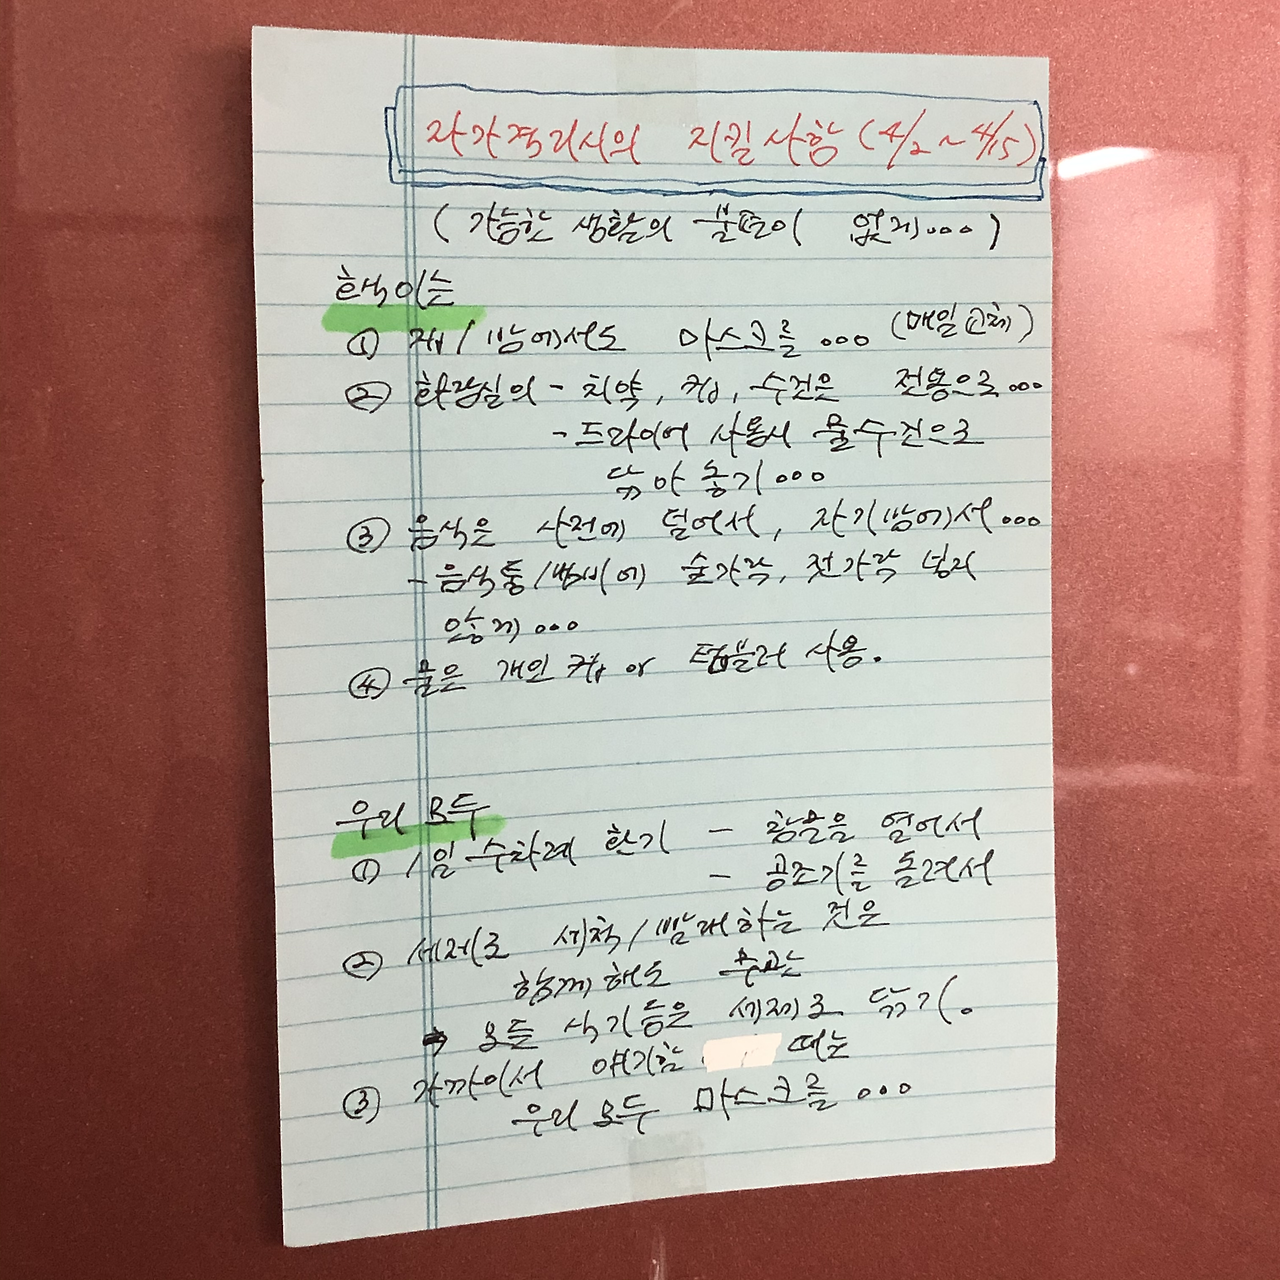 자가격리시의 지킬 사항 (4/2 ~ 4/15)
(가능한 생활의 불편이 없게...)
현석이는
① 집/방에서도 마스크를 ... (매일 교체)
② 화장실의 - 치약, 컵, 수건은 전용으로...
- 드라이어 사용시 물수건으로
닦아 놓기...
③ 음식은 사전에 덜어서, 자기방에서...
- 음식통/냄비에 숟가락, 젓가락 넣지
않게...
④ 물은 개인 컵 or 텀블러 사용.
우리 모두
① 1일 수차례 환기 - 창문을 열어서
- 공조기를 돌려서
② 세제로 세척/빨래하는 것은
함께해도 무관
→ 모든 식기등은 세제로 닦기.
③ 가까이서 얘기할 때는
우리 모두 마스크를 ...